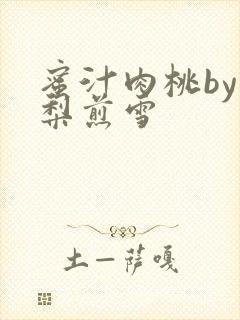 蜜汁肉桃by
梨煎雪
土一萨嘎